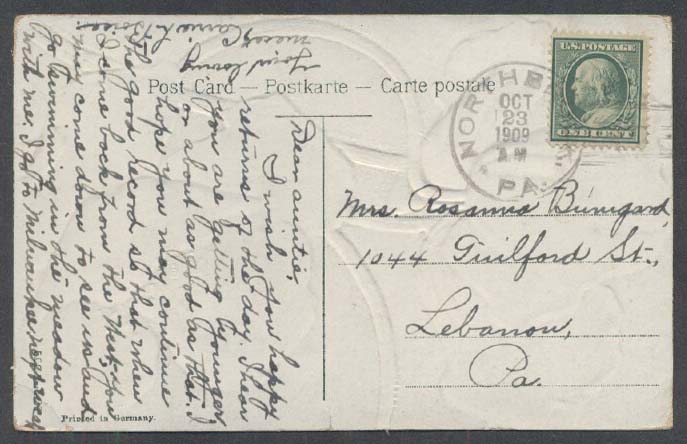 Post Card — Postkarte — Carte postale
U.S. POSTAGE
ONE CENT
OCT
23
1909
AM
PA.
Dear auntie,
I wish you happy
returns of the day. I hear
you are getting younger,
or about as good as that. I
hope you may continue
the good record so that when
I come back from the West, you
may come down to see us and
go swimming in the meadow
with me. I go to Milwaukee, next week
Your loving
niece,
Carrie
Mrs. Rosanna Bumgard,
1044 Guilford St.,
Lebanon,
Pa.
Printed in Germany.